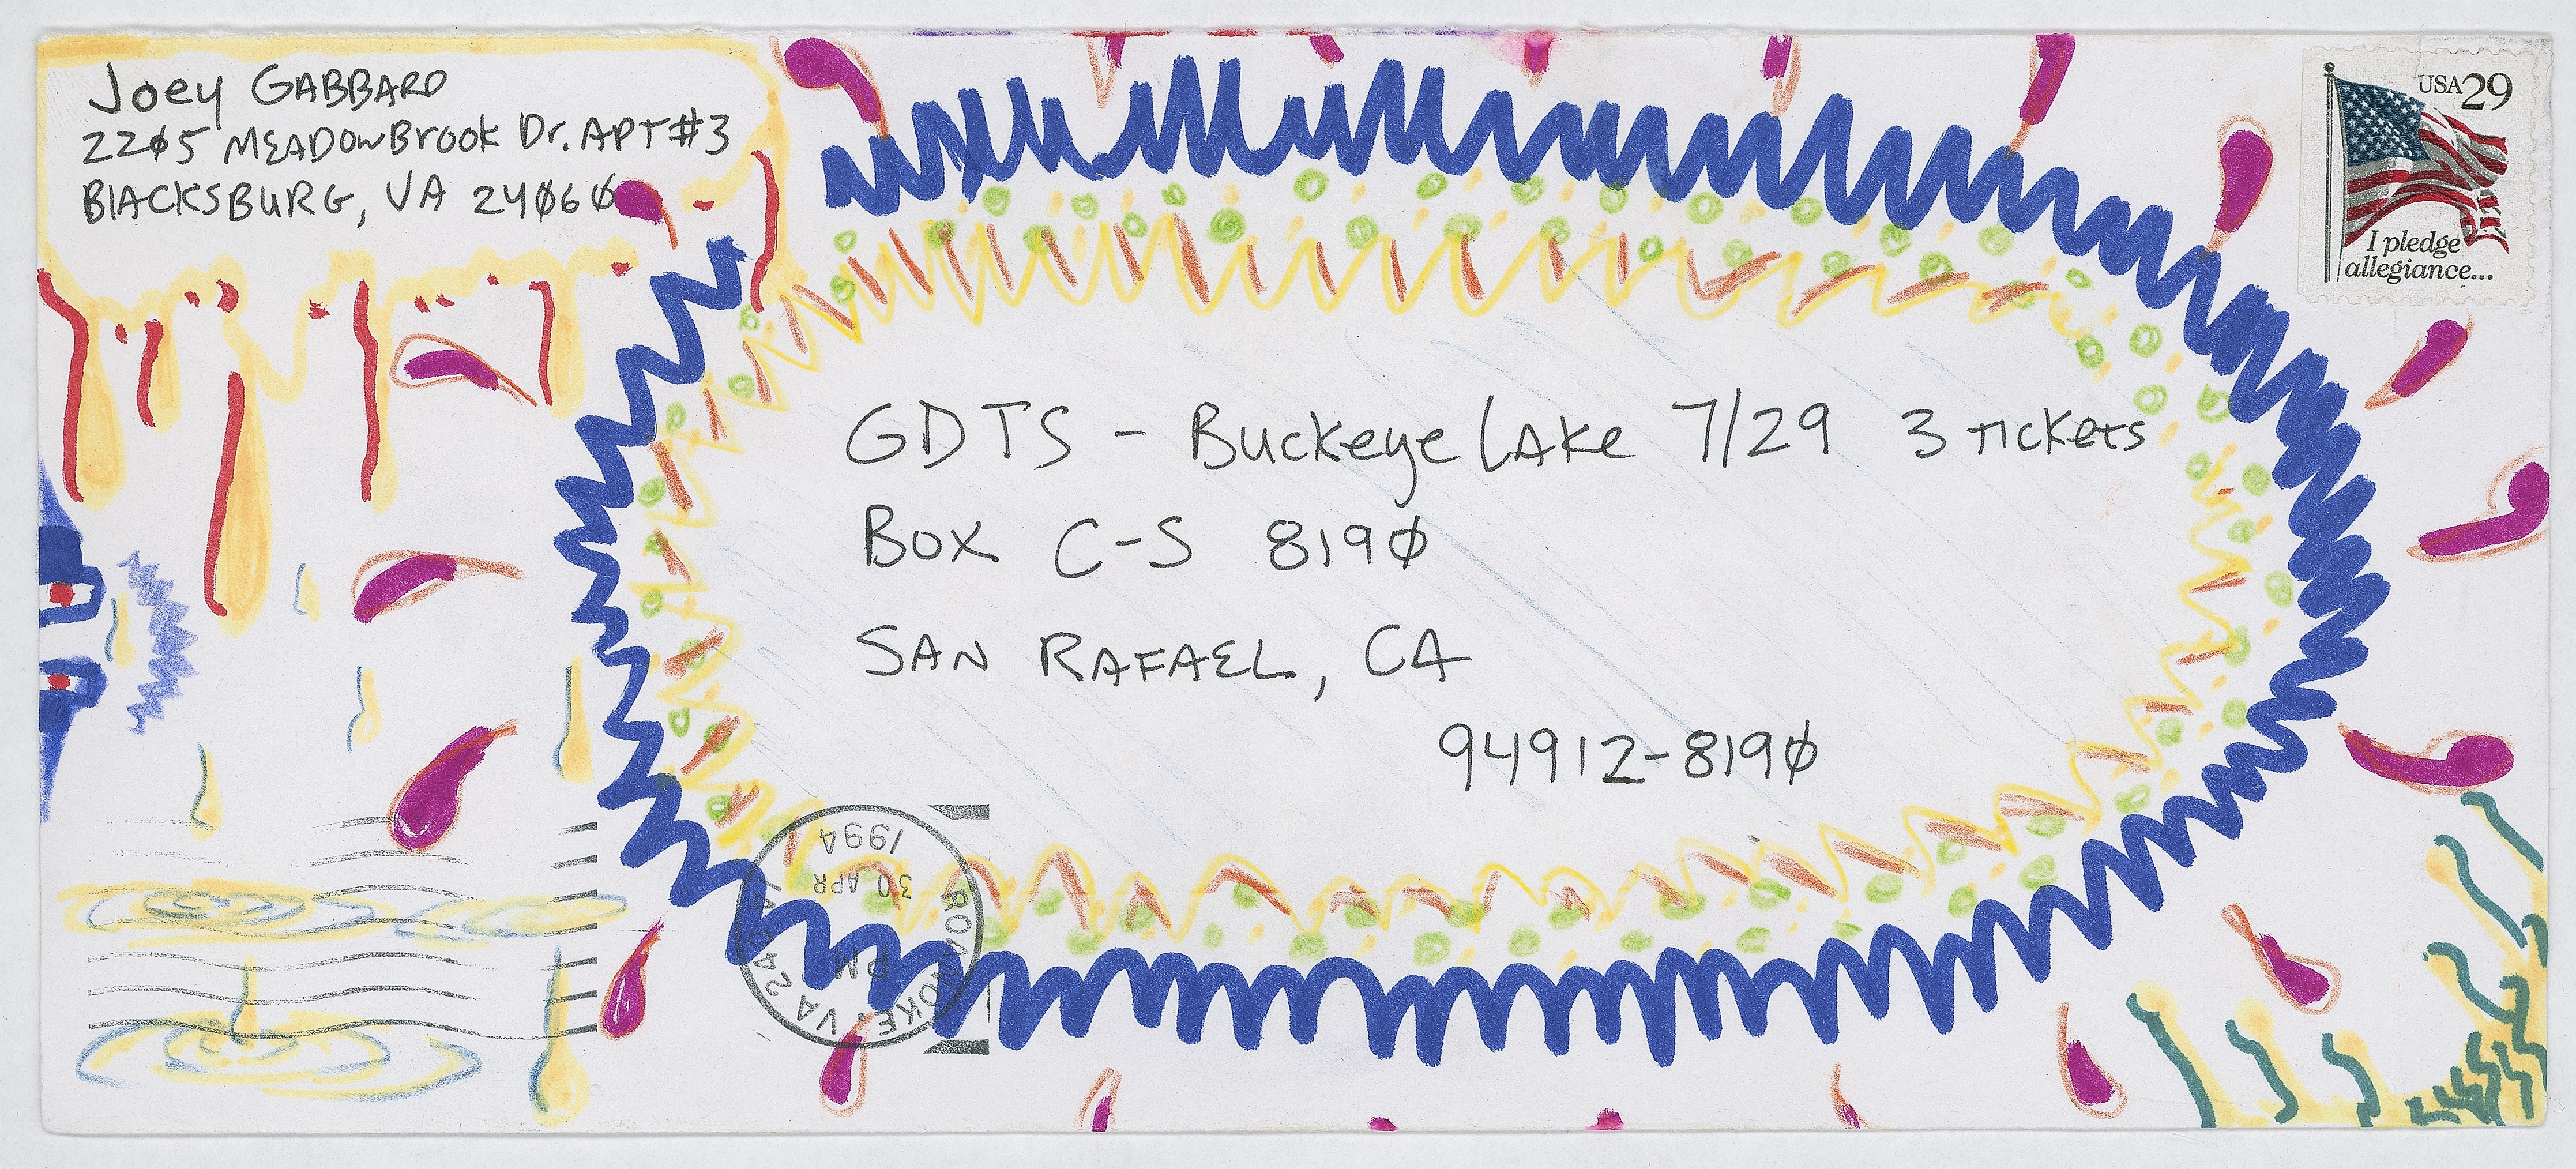 Joey GABBARD
22Ø5 MEADOWBrook Dr. APT #3
BlACKSBURG, VA 24Ø6Ø
USA 29
I pledge
allegiance...
GDTS - Buckeye LAke 7/29 3 TickeTs
Box C-S 819Ø
SAN RAFAEL, CA
94912-819Ø
ROANOKE, VA
PM
30 APR
1994